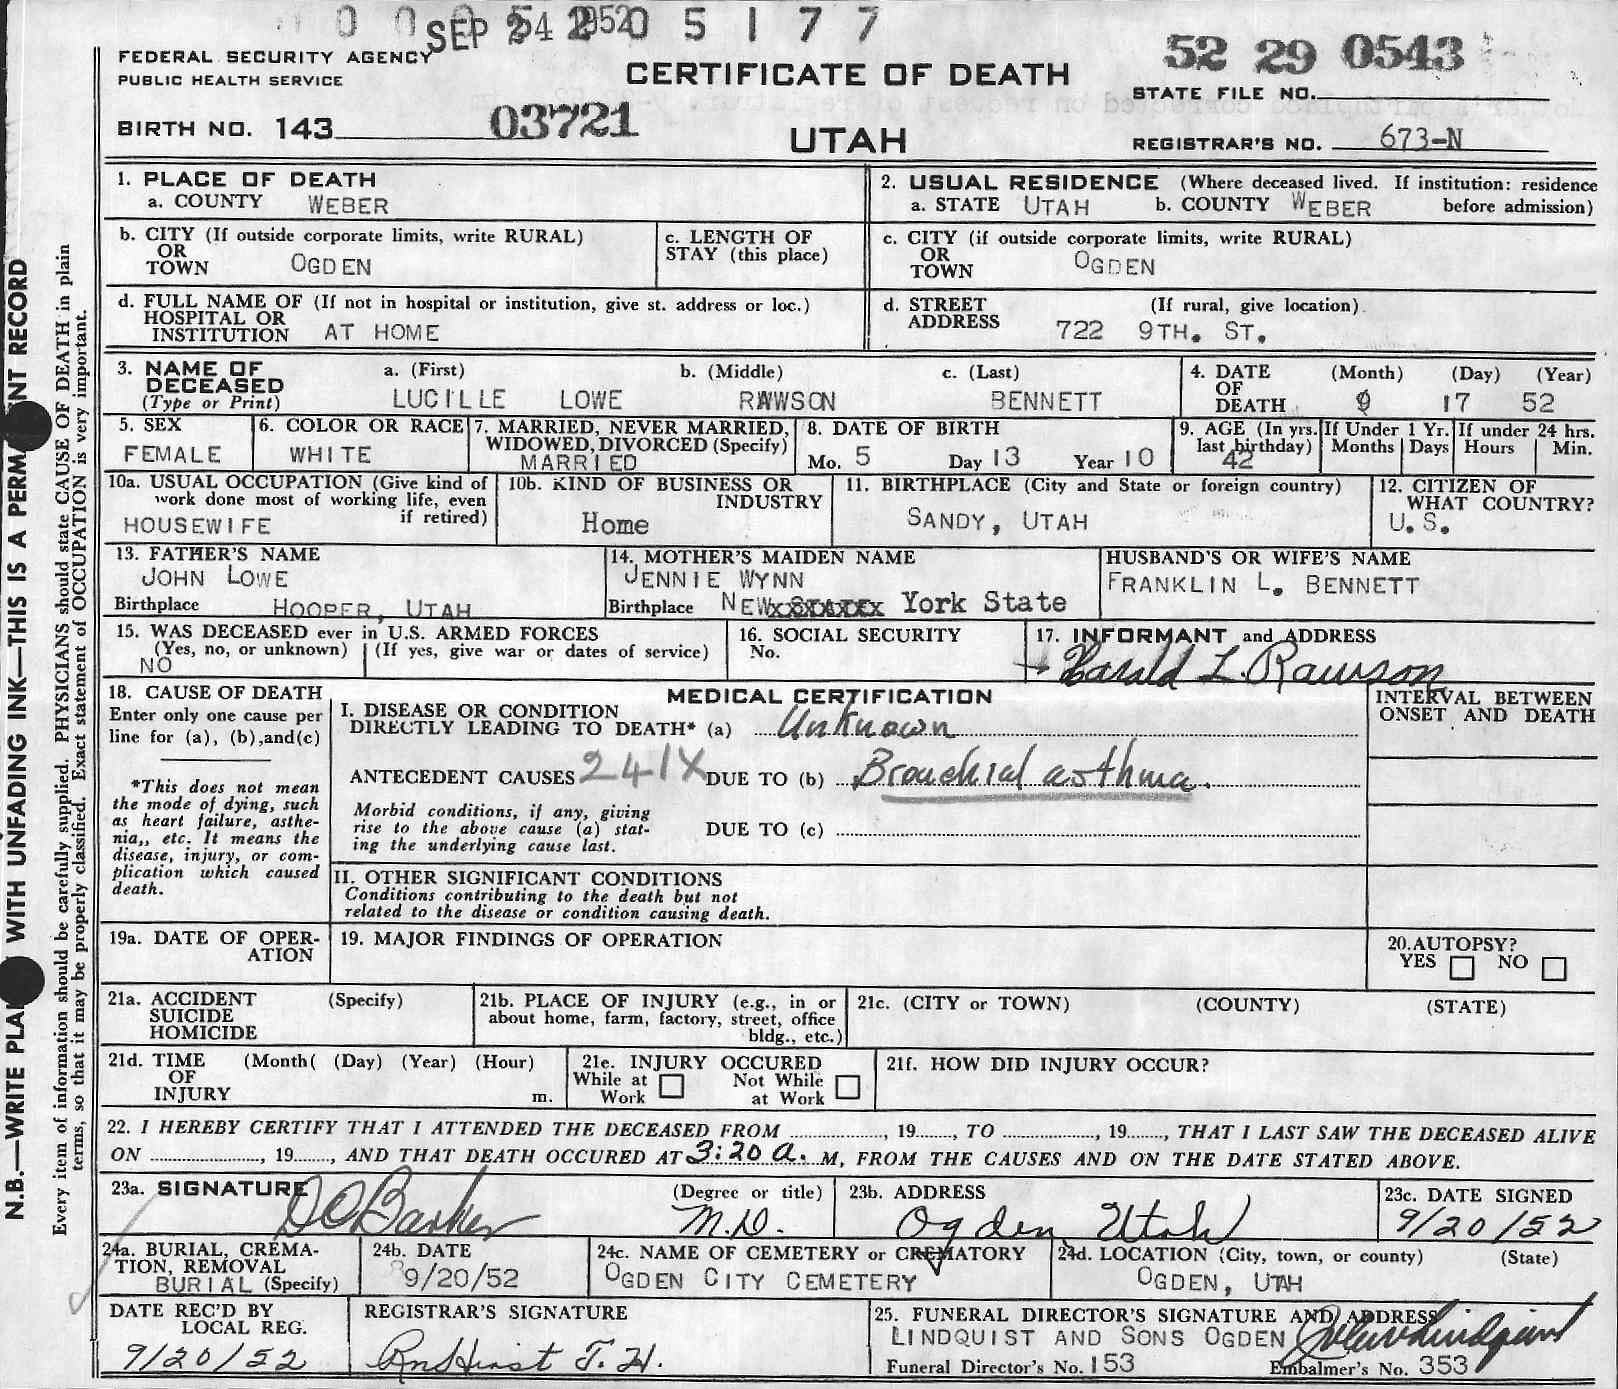 SEP 24 1952 0 5 1 7 7
52 29 0543
FEDERAL SECURITY AGENCY
PUBLIC HEALTH SERVICE
CERTIFICATE OF DEATH
STATE FILE NO.
BIRTH NO. 143 03721
UTAH
REGISTRAR'S NO. 673-N
1. PLACE OF DEATH
a. COUNTY WEBER
2. USUAL RESIDENCE (Where deceased lived. If institution: residence
a. STATE UTAH b. COUNTY WEBER before admission)
b. CITY (If outside corporate limits, write RURAL)
OR
TOWN OGDEN
c. LENGTH OF
STAY (this place)
c. CITY (if outside corporate limits, write RURAL)
OR
TOWN OGDEN
d. FULL NAME OF (If not in hospital or institution, give st. address or loc.)
HOSPITAL OR
INSTITUTION AT HOME
d. STREET (If rural, give location)
ADDRESS 722 9TH. ST.
3. NAME OF a. (First) b. (Middle) c. (Last)
DECEASED
(Type or Print) LUCILLE LOWE RAWSON BENNETT
4. DATE (Month) (Day) (Year)
OF
DEATH 9 17 52
5. SEX
FEMALE
6. COLOR OR RACE
WHITE
7. MARRIED, NEVER MARRIED,
WIDOWED, DIVORCED (Specify)
MARRIED
8. DATE OF BIRTH
Mo. 5 Day 13 Year 10
9. AGE (In yrs.
last birthday)
42
If Under 1 Yr.
Months Days
If under 24 hrs.
Hours Min.
10a. USUAL OCCUPATION (Give kind of
work done most of working life, even
if retired)
HOUSEWIFE
10b. KIND OF BUSINESS OR
INDUSTRY
Home
11. BIRTHPLACE (City and State or foreign country)
SANDY, UTAH
12. CITIZEN OF
WHAT COUNTRY?
U.S.
13. FATHER'S NAME
JOHN LOWE
Birthplace HOOPER, UTAH
14. MOTHER'S MAIDEN NAME
JENNIE WYNN
Birthplace NEW York State
HUSBAND'S OR WIFE'S NAME
FRANKLIN L. BENNETT
15. WAS DECEASED ever in U.S. ARMED FORCES
(Yes, no, or unknown) (If yes, give war or dates of service)
NO
16. SOCIAL SECURITY
No.
17. INFORMANT and ADDRESS
Harald L. Rawson
18. CAUSE OF DEATH
Enter only one cause per
line for (a), (b), and(c)
*This does not mean
the mode of dying, such
as heart failure, asthe-
nia,, etc. It means the
disease, injury, or com-
plication which caused
death.
MEDICAL CERTIFICATION
I. DISEASE OR CONDITION
DIRECTLY LEADING TO DEATH* (a) Unknown
ANTECEDENT CAUSES 241X DUE TO (b) Bronchial asthma.
Morbid conditions, if any, giving
rise to the above cause (a) stat-
ing the underlying cause last.
DUE TO (c)
II. OTHER SIGNIFICANT CONDITIONS
Conditions contributing to the death but not
related to the disease or condition causing death.
INTERVAL BETWEEN
ONSET AND DEATH
19a. DATE OF OPER-
ATION
19. MAJOR FINDINGS OF OPERATION
20. AUTOPSY?
YES NO
21a. ACCIDENT (Specify)
SUICIDE
HOMICIDE
21b. PLACE OF INJURY (e.g., in or
about home, farm, factory, street, office
bldg., etc.)
21c. (CITY or TOWN) (COUNTY) (STATE)
21d. TIME (Month( (Day) (Year) (Hour)
OF
INJURY m.
21e. INJURY OCCURED
While at Not While
Work at Work
21f. HOW DID INJURY OCCUR?
22. I HEREBY CERTIFY THAT I ATTENDED THE DECEASED FROM , 19 , TO , 19 , THAT I LAST SAW THE DECEASED ALIVE
ON , 19 , AND THAT DEATH OCCURED AT 3:20 a. M, FROM THE CAUSES AND ON THE DATE STATED ABOVE.
23a. SIGNATURE (Degree or title)
D C Barker M.D.
23b. ADDRESS
Ogden, Utah
23c. DATE SIGNED
9/20/52
24a. BURIAL, CREMA-
TION, REMOVAL
BURIAL (Specify)
24b. DATE
9/20/52
24c. NAME OF CEMETERY or CREMATORY
OGDEN CITY CEMETERY
24d. LOCATION (City, town, or county) (State)
OGDEN, UTAH
DATE REC'D BY
LOCAL REG.
9/20/52
REGISTRAR'S SIGNATURE
25. FUNERAL DIRECTOR'S SIGNATURE AND ADDRESS
LINDQUIST AND SONS OGDEN
Funeral Director's No. 153 Embalmer's No. 353
N.B.—WRITE WITH UNFADING INK—THIS IS A RECORD
Every item of information should be carefully supplied. PHYSICIANS should state CAUSE OF DEATH in plain
terms, so that it may be properly classified. Exact statement of OCCUPATION is very important.